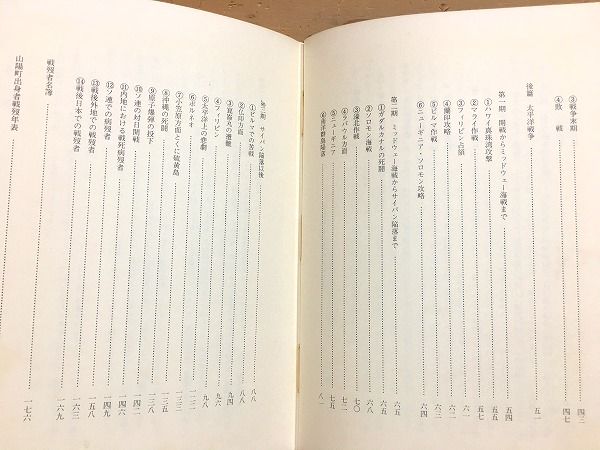 ③戦争末期……四三
④敗　戦……四七
後篇　太平洋戦争……五一
第一期　開戦からミッドウェー海戦まで……五四
①ハワイ真珠湾攻撃……五五
②マライ作戦……五七
③フィリピン占領……六一
④蘭印攻略……六二
⑤ビルマ作戦……六三
⑥ニューギニア・ソロモン攻略……六四
第二期　ミッドウェー海戦からサイパン陥落まで……六五
①ガダルカナルの死闘……六五
②ソロモン海戦……六八
③濠北作戦……七〇
④ラバウル方面……七二
⑤ニューギニア……七五
⑥南洋群島陥落……八一
第三期　サイパン陥落以後……八八
①ビルマでの苦戦……八八
②仏印方面……九一
③崑崙丸の遭難……九四
④フィリピン……九五
⑤太平洋上の悲劇……九八
⑥ボルネオ
⑦小笠原方面とくに硫黄島
⑧沖縄の死闘
⑨原子爆弾の投下……一三八
⑩ソ連の対日開戦
⑪内地における戦死病歿者……一四六
⑫ソ連での病歿者……一四九
⑬戦後外地での戦歿者……一五八
⑭戦後日本での戦歿者……一六三
戦歿者名簿……一六九
山陽町出身者戦歿年表……一七六